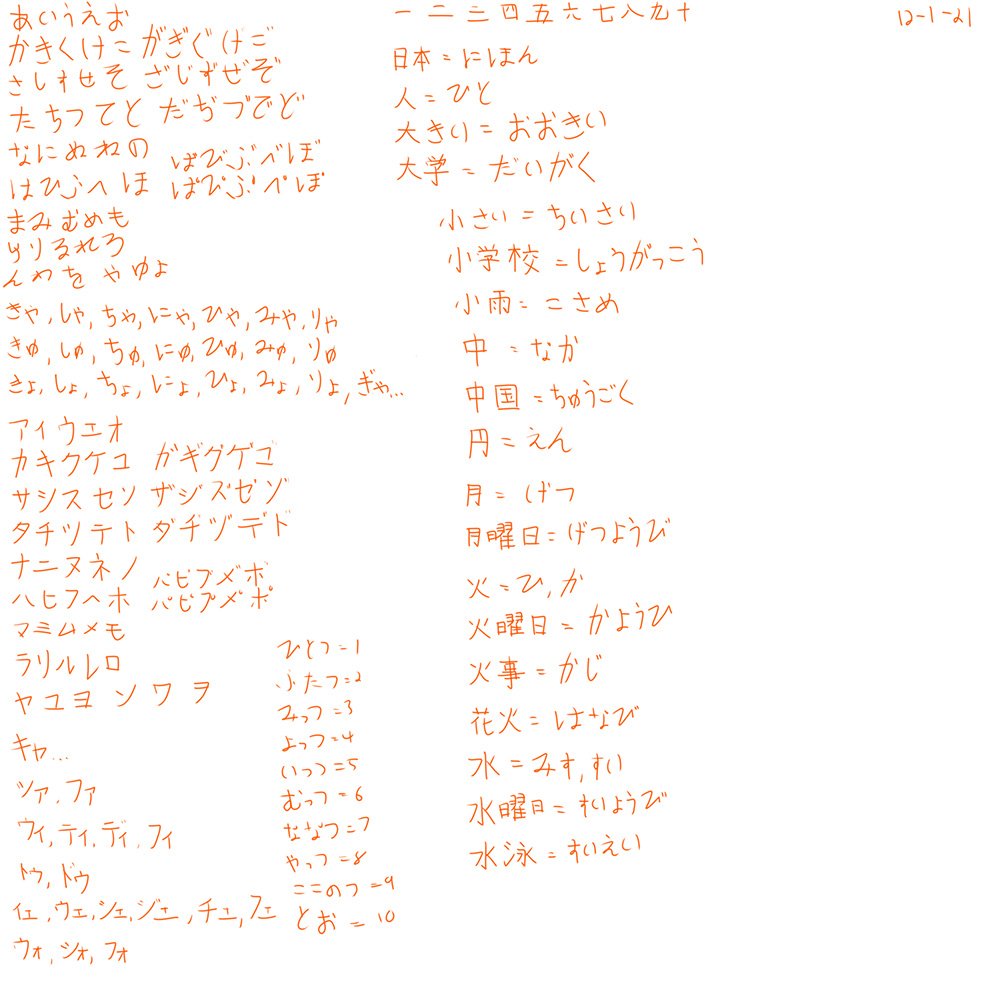 あいうえお
かきくけこ がぎぐげご
さしすせそ ざじずぜぞ
たちつてと だぢづでど
なにぬねの ばびぶべぼ
はひふへほ ぱぴぷぺぽ
まみむめも
らりるれろ
んわを やゆよ
きゃ,しゃ,ちゃ,にゃ,ひゃ,みゃ,りゃ
きゅ,しゅ,ちゅ,にゅ,ひゅ,みゅ,りゅ
きょ,しょ,ちょ,にょ,ひょ,みょ,りょ,ぎゃ...
アイウエオ
カキクケコ ガギグゲゴ
サシスセソ ザジズゼゾ
タチツテト ダヂヅデド
ナニヌネノ バビブメ゙ボ
ハヒフヘホ パピプメ゚ポ
マミムメモ
ラリルレロ
ヤユヨ ン ワ ヲ
キャ...
ツァ,ファ
ウィ,ティ,ディ,フィ
トゥ,ドゥ
イェ,ウェ,シェ,ジェ,チェ,フェ
ウォ,ショ,フォ
ひとつ=1
ふたつ=2
みっつ=3
よっつ=4
いつつ=5
むっつ=6
ななつ=7
やっつ=8
ここのつ=9
とお=10
一二三四五六七八九十
日本=にほん
人=ひと
大きい=おおきい
大学=だいがく
小さい=ちいさい
小学校=しょうがっこう
小雨=こさめ
中=なか
中国=ちゅうごく
円=えん
月=げつ
月曜日=げつようび
火=ひ,か
火曜日=かようび
火事=かじ
花火=はなび
水=みす,すい
水曜日=すいようび
水泳=すいえい
12-1-21